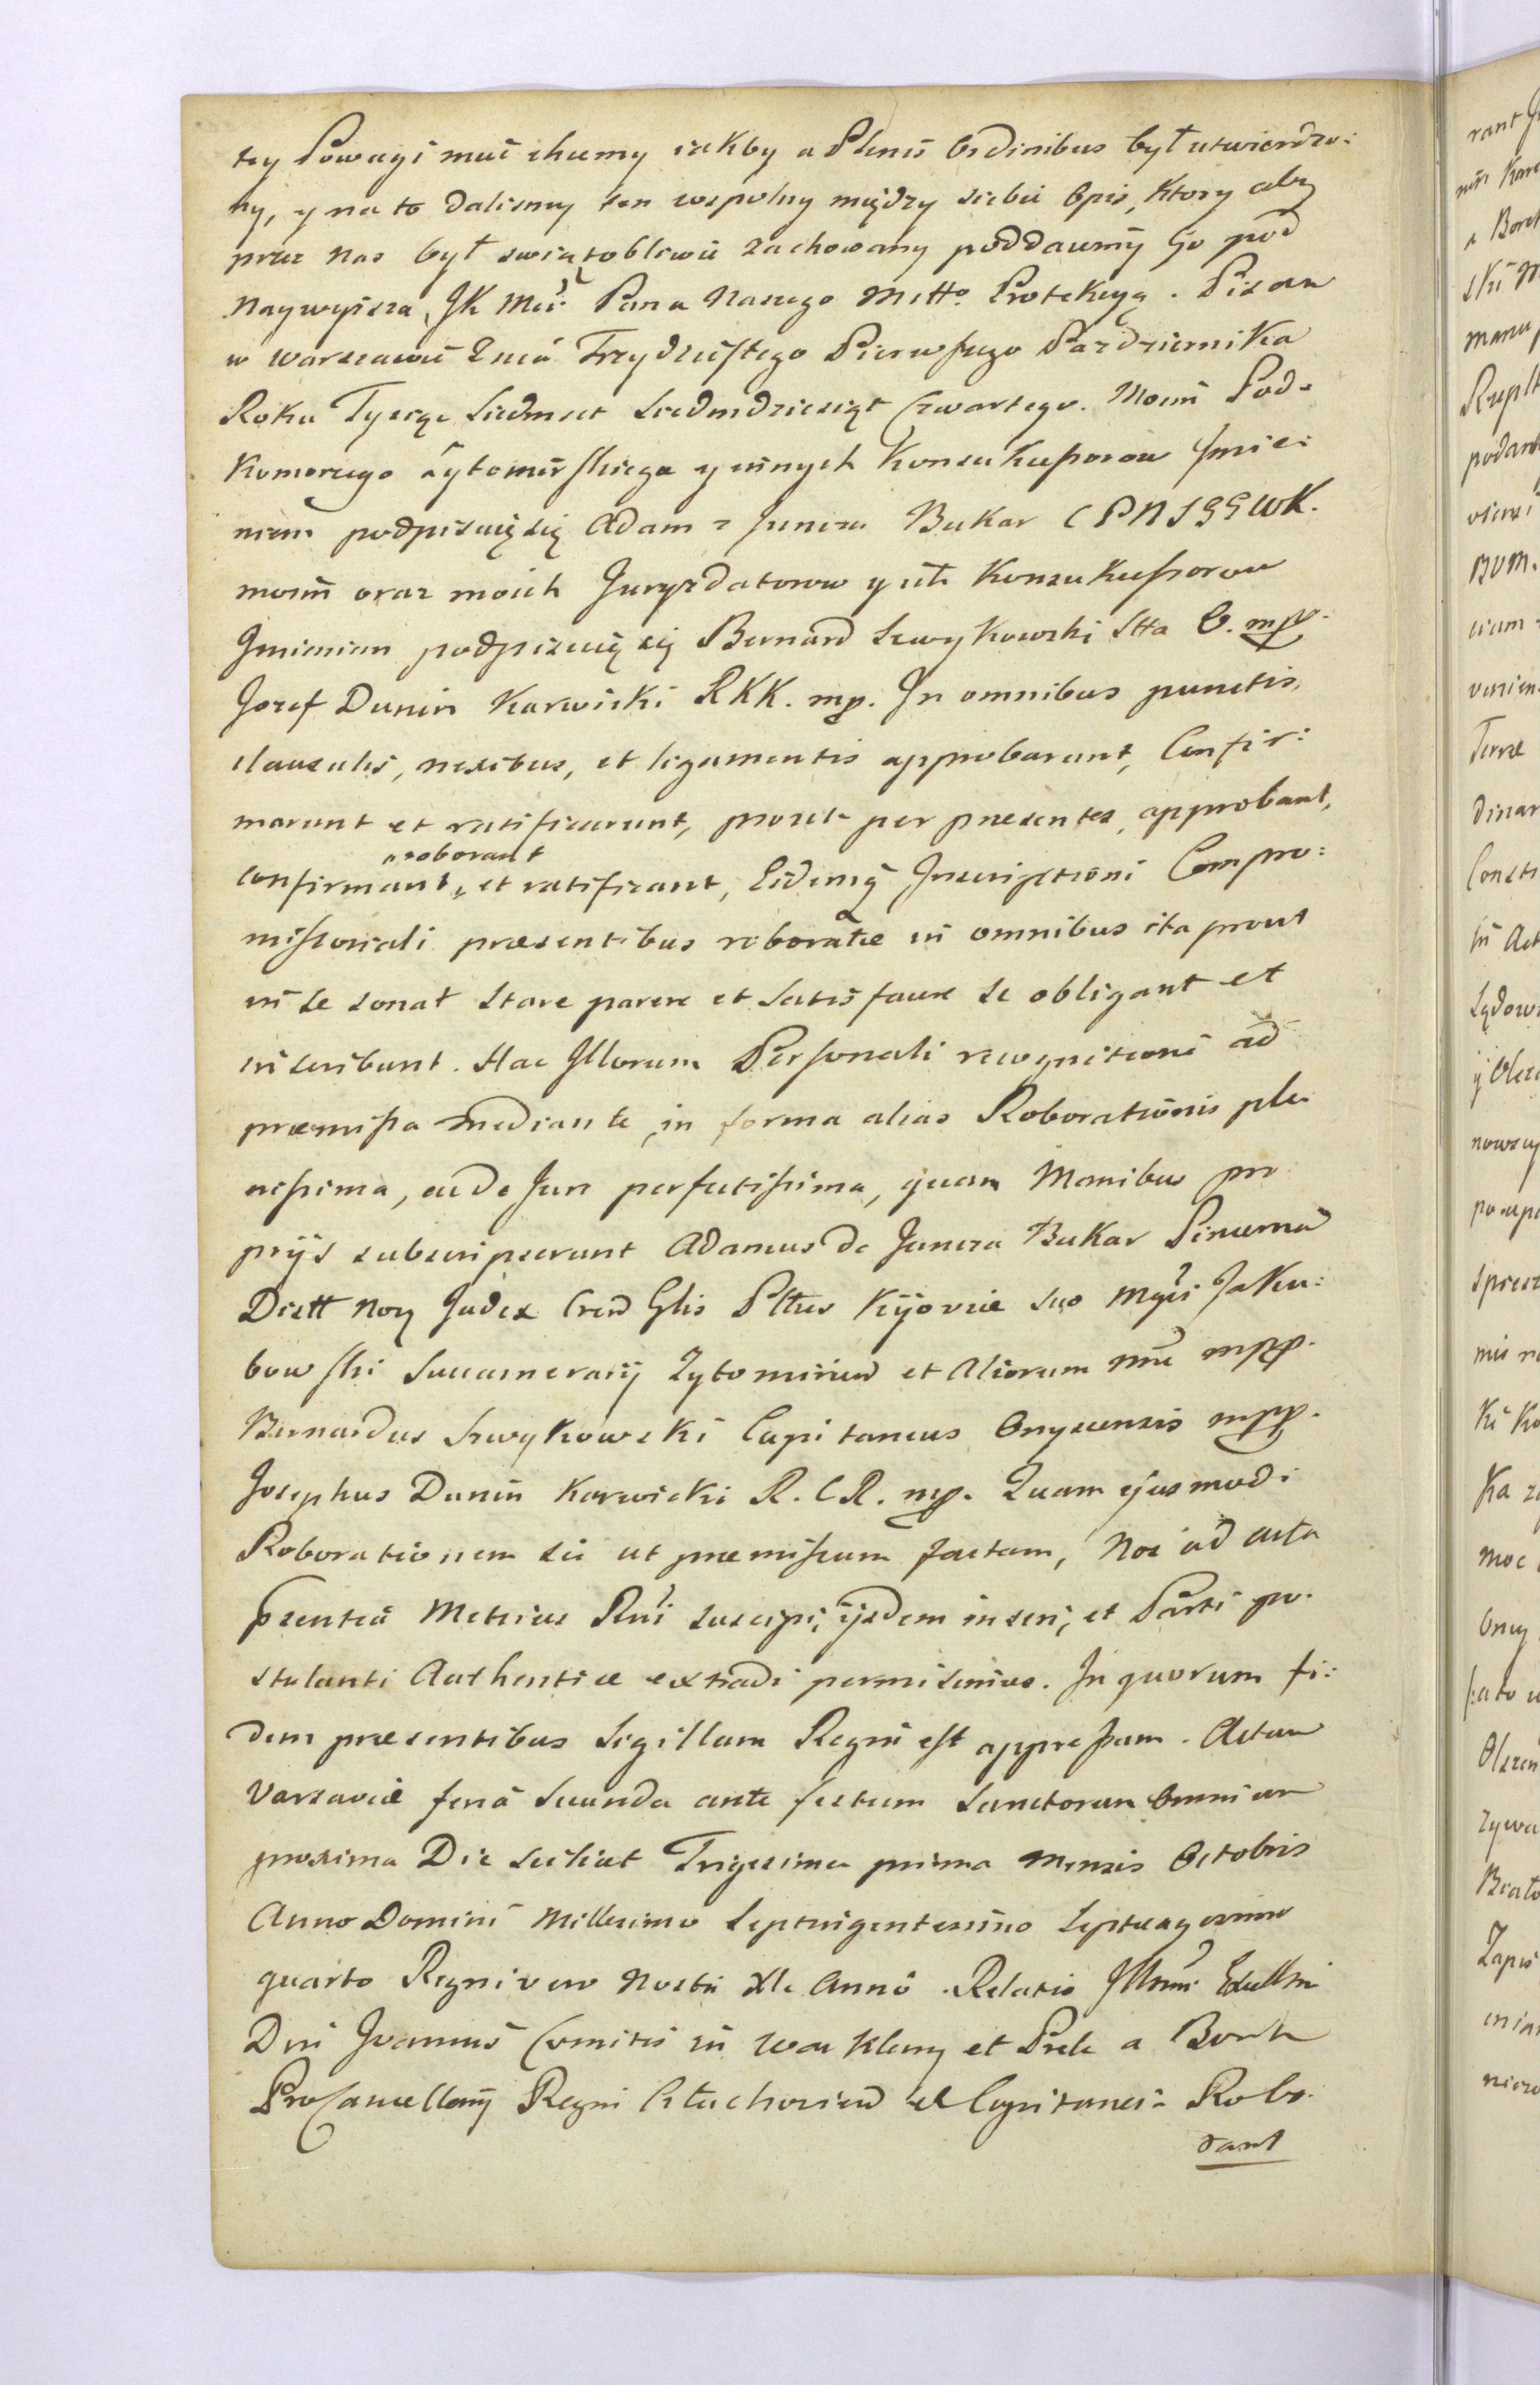 tey Powagi mieć chcemy iakby a Plenis Ordinibus był utwierdzo:
ny, y na to daliśmy ten wspolny między siebie Opis, Ktory aby
przez nas był swiątobliwie zachowany poddaiemy Go pod
Naywyższą JK Mci Pana Naszego Miłło Protekcyą. Pisan
w Warszawie Dnia Trzydziestego Pierwszego Pazdziernika
Roku Tysiąc Siedmset Siedmdziesiąt Czwartego. Moim Pod=
Komorzego Żytomirskiego y innych Konsukcessorow Jmie:
niem podpisuię się Adam z Janiza Bukar CPNJGGWK.
moim oraz moich Juryzdatorow y ich Konsukcessorow
Jmieniem podpisuię się Bernard Szwykowski Stta O. mp.
Jozef Dunin Karwicki RKK. mp. In omnibus punctis,
clausulis, nexibus, et ligamentis approbarunt, Confir:
marunt et ratificarunt, prout per presentes, approbant,
roborant
confirmant, et ratificant, Eidemq Jnscriptioni Compro:
missoriali præsentibus roboratæ in omnibus ita prout
in se sonat stare parere et satisfacere se obligant et
inscribunt. Hac Jllorum Personali recognitione ad
præmissa mediante, in forma alias Roborationis ple
nissima, ac de Jure perfectissima, quam Manibus pro
priis subscripserunt Adamus de Janiza Bukar Pincerna
Distt Noy Judex Cren Glis Pltus Kijoviæ suo Mgci Jaku:
bowski Succamerarij Zytomirien et Aliorum nne mpp.
Bernardus Szwykowski Capitaneus Onyscensis mpp.
Josephus Dunin Karwicki R. C R. mp. Quam ejusmodi
Roborationem sic ut præmissum factam, Nos ad acta
præsentia Metrices Rni suscipi, ijsdem inseri, et Parti po:
stulanti Authentice extradi permisimus. In quorum fi:
dem præsentibus Sigillum Regni est appressum. Actum
Varsaviæ feria secunda ante festum Sanctorum Omnium
proxima Die scilicet Trigesima prima mensis Octobris
Anno Domini Millesimo Septingentesimo Septuagesimo
quarto Regni vero Nostri XIo Anno. Relatio Jllmi Exellmi
Dni Joannis Comitis in Warklany et Prele a Borch
ProCancellarij Regni Oltuchovien et Capitanei= Robo=
rant